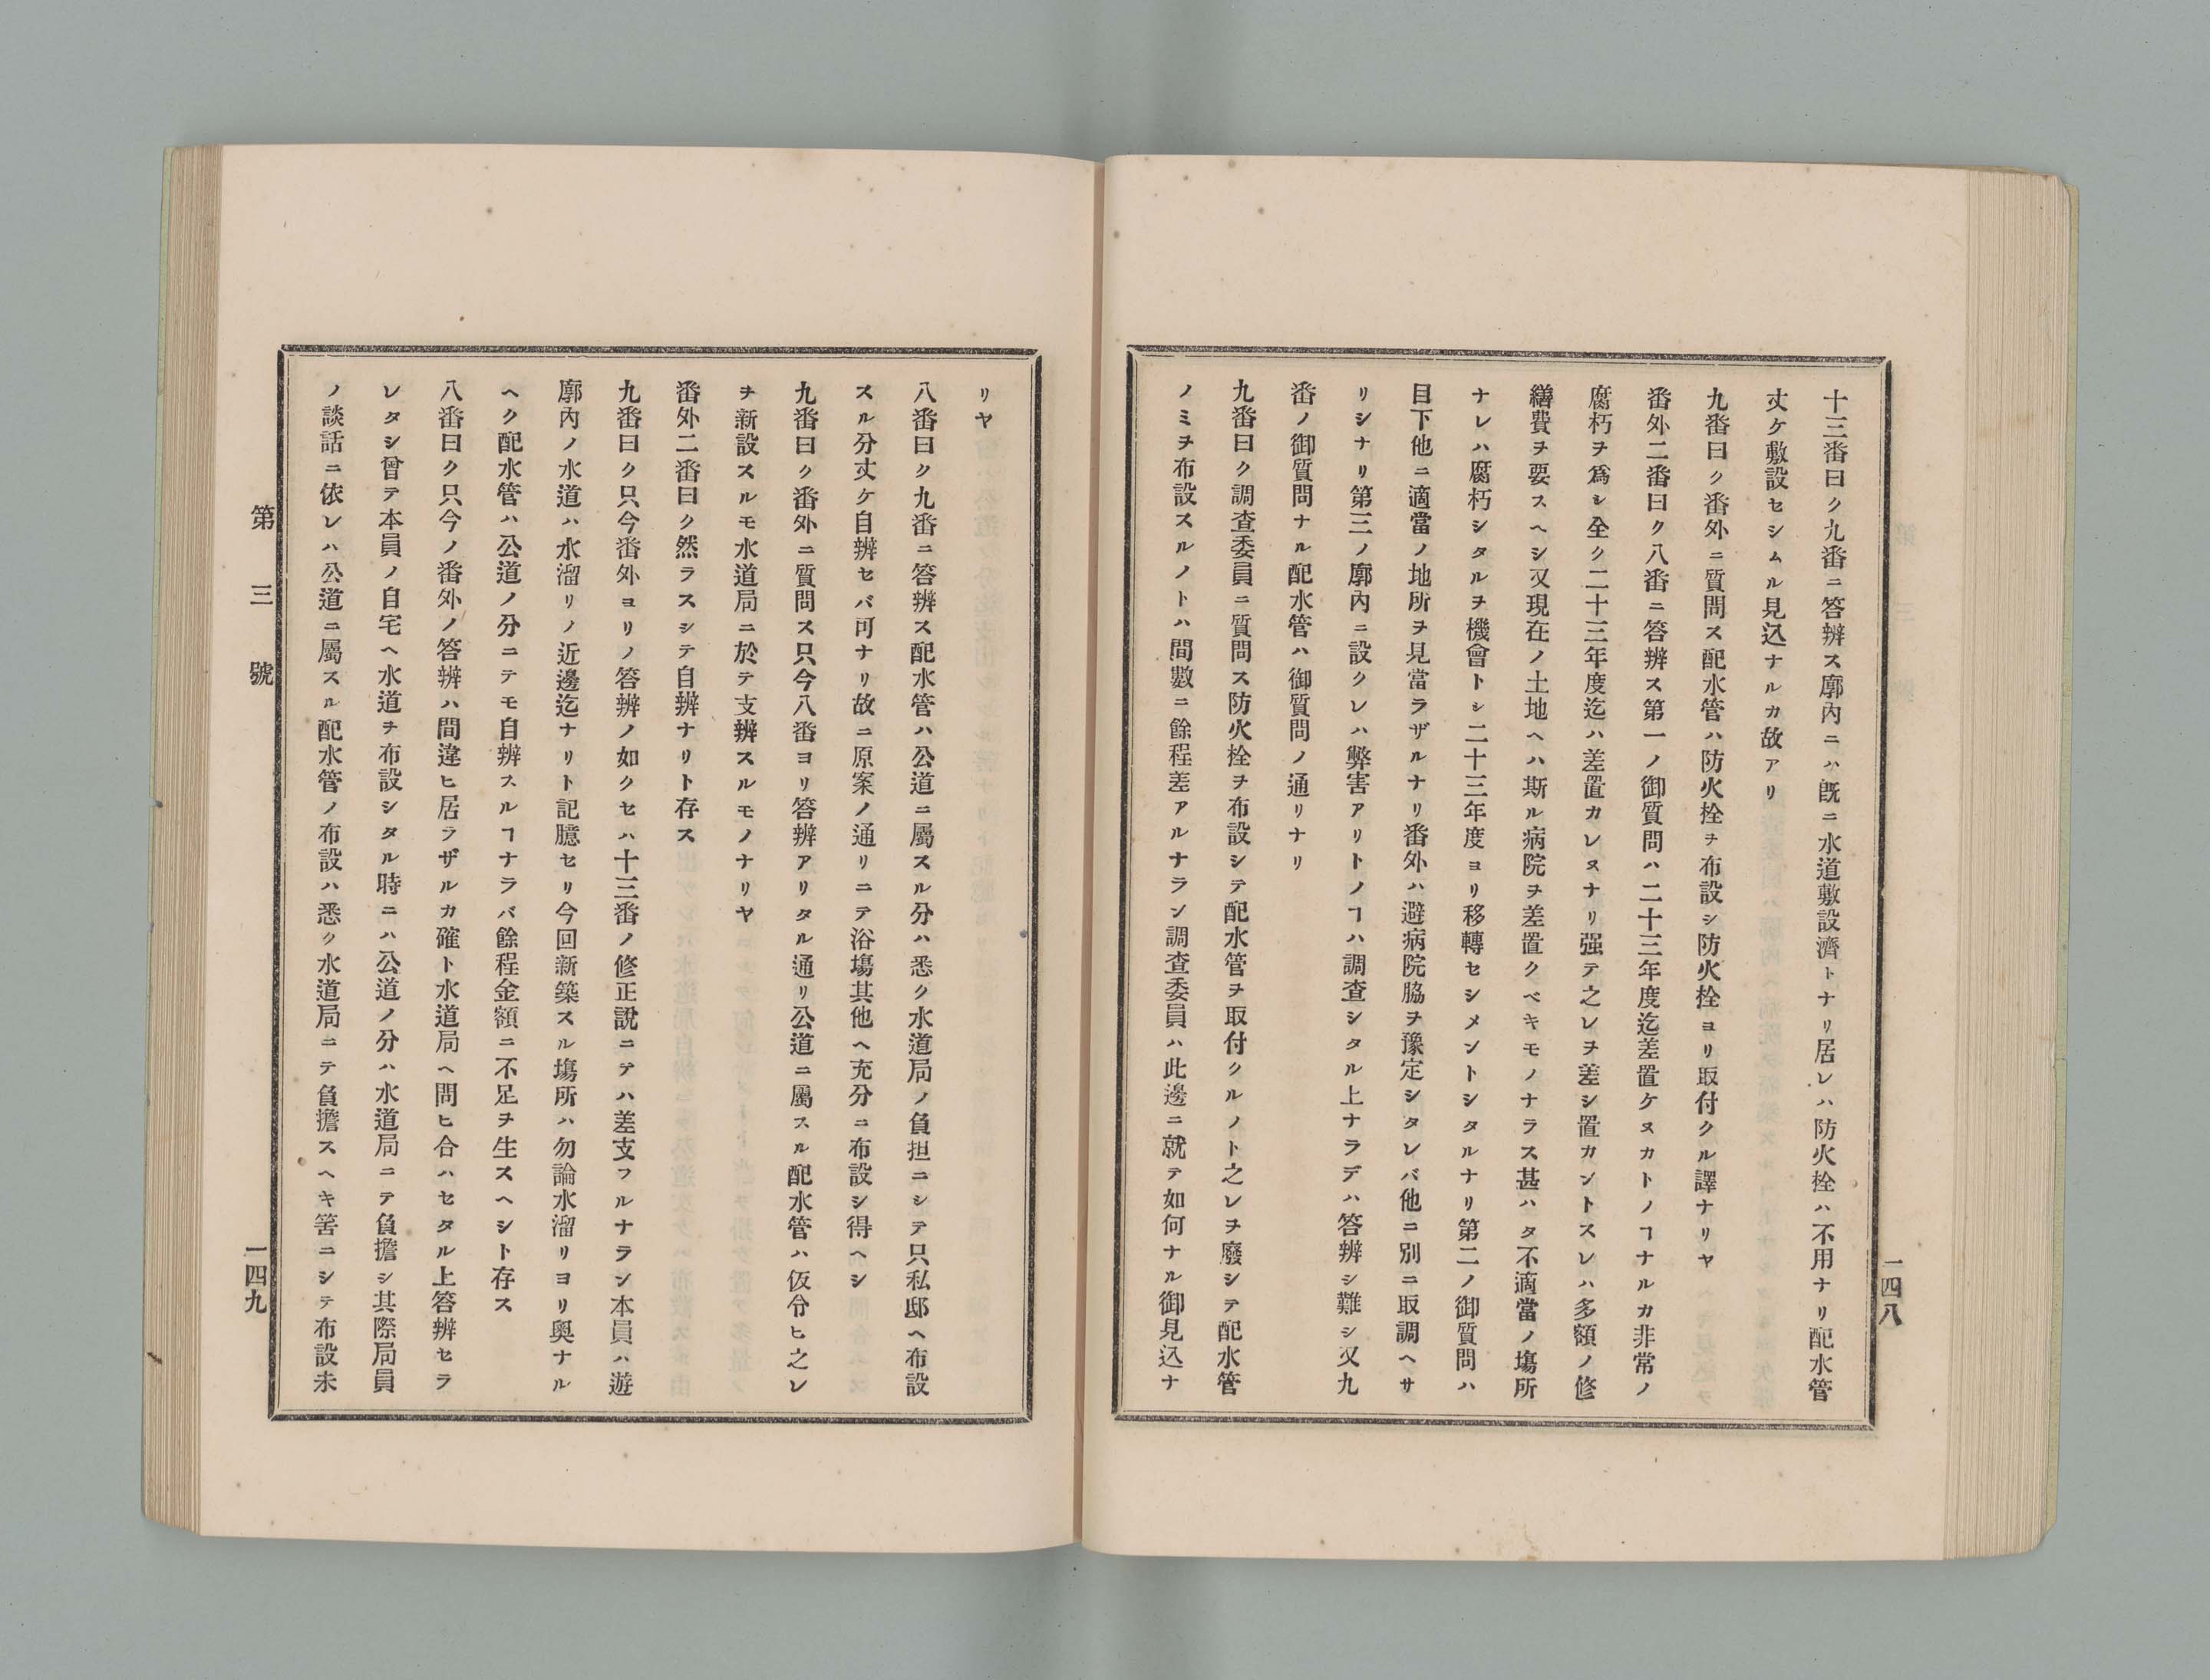 十三番曰ク九番ニ答辨ス廓內ニハ既ニ水道敷設濟トナリ居レハ防火栓ハ不用ナリ配水管
丈ケ敷設セシムル見込ナルカ故アリ
九番曰ク番外ニ質問ス配水管ハ防火栓ヲ布設シ防火栓ヨリ取付クル譯ナリヤ
番外二番曰ク八番ニ答辨ス第一ノ御質問ハ二十三年度迄差置ケヌカトノヿナルカ非常ノ
腐朽ヲ爲シ全ク二十三年度迄ハ差置カレヌナリ强テ之レヲ差シ置カントスレハ多額ノ修
繕費ヲ要スヘシ又現在ノ土地ヘハ斯ル病院ヲ差置クベキモノナラス甚ハタ不適當ノ塲所
ナレハ腐朽シタルヲ機會トシ二十三年度ヨリ移轉セシメントシタルナリ第二ノ御質問ハ
目下他ニ適當ノ地所ヲ見當ラザルナリ番外ハ避病院脇ヲ豫定シタレバ他ニ別ニ取調ヘサ
リシナリ第三ノ廓內ニ設クレハ弊害アリトノヿハ調査シタル上ナラデハ答辨シ難シ又九
番ノ御質問ナル配水管ハ御質問ノ通リナリ
九番曰ク調査委員ニ質問ス防火栓ヲ布設シテ配水管ヲ取付クルノト之レヲ廢シテ配水管
ノミヲ布設スルノトハ間數ニ餘程差アルナラン調査委員ハ此邊ニ就テ如何ナル御見込ナ
一四八
リヤ
八番曰ク九番ニ答辨ス配水管ハ公道ニ屬スル分ハ悉ク水道局ノ負担ニシテ只私邸ヘ布設
スル分丈ケ自辨セバ可ナリ故ニ原案ノ通リニテ浴塲其他ヘ充分ニ布設シ得ヘシ
九番曰ク番外ニ質問ス只今八番ヨリ答辨アリタル通リ公道ニ屬スル配水管ハ仮令ヒ之レ
ヲ新設スルモ水道局ニ於テ支辨スルモノナリヤ
番外二番曰ク然ラスシテ自辨ナリト存ス
九番曰ク只今番外ヨリノ答辨ノ如クセハ十三番ノ修正說ニテハ差支フルナラン本員ハ遊
廓內ノ水道ハ水溜リノ近邊迄ナリト記臆セリ今回新築スル塲所ハ勿論水溜リヨリ奧ナル
ヘク配水管ハ公道ノ分ニテモ自辨スルヿナラバ餘程金額ニ不足ヲ生スヘシト存ス
八番曰ク只今ノ番外ノ答辨ハ間違ヒ居ラザルカ確ト水道局ヘ問ヒ合ハセタル上答辨セラ
レタシ曾テ本員ノ自宅ヘ水道ヲ布設シタル時ニハ公道ノ分ハ水道局ニテ負擔シ其際局員
ノ談話ニ依レハ公道ニ屬スル配水管ノ布設ハ悉ク水道局ニテ負擔スヘキ筈ニシテ布設未
第三號
一四九